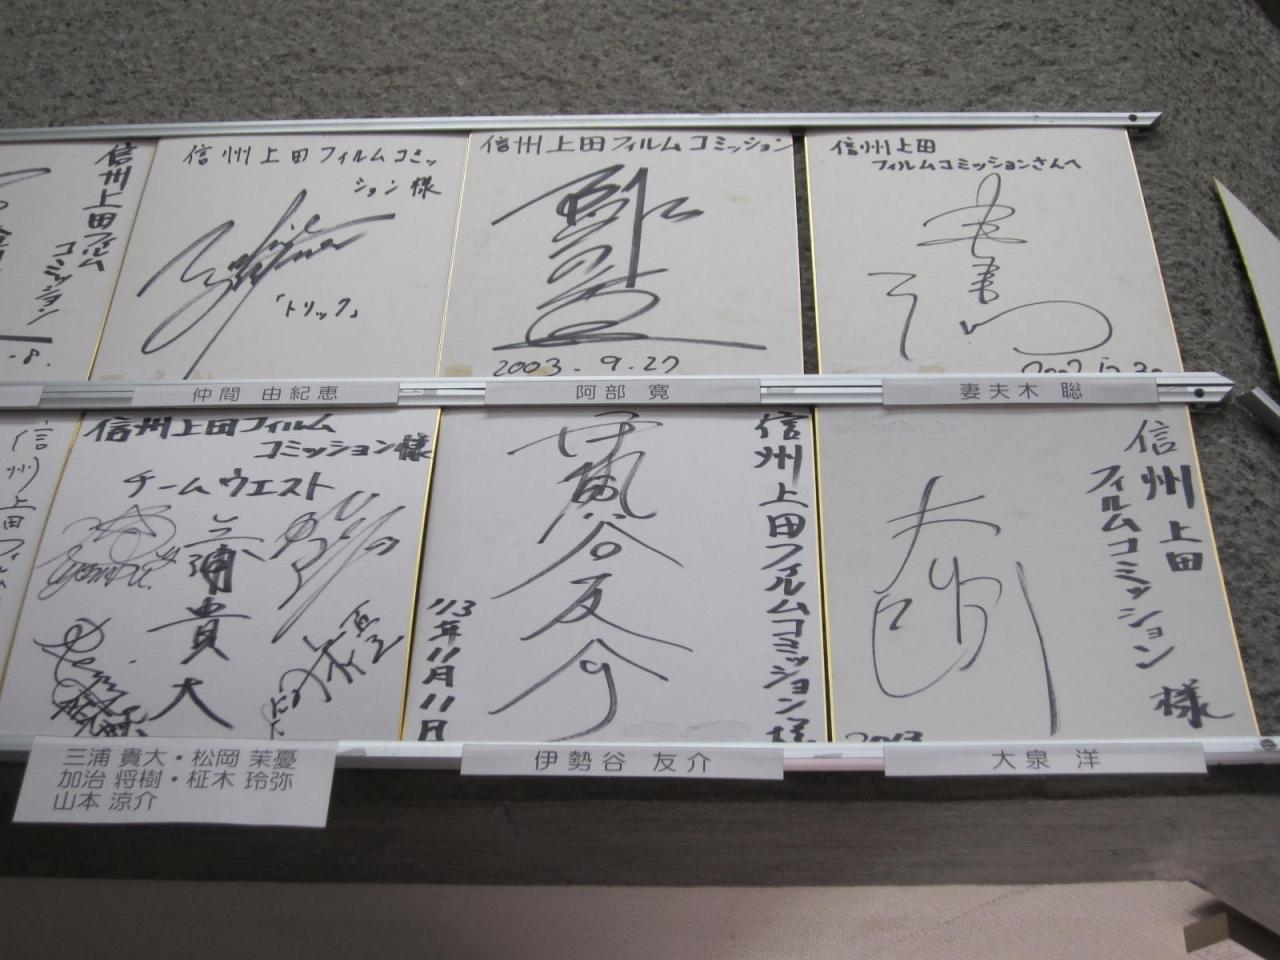 信州上田フィルム
コミッション
.8.
信州上田フィルムコミッ
ション様
「トリック」
仲間 由紀恵
信州上田フィルムコミッション
阿部寛
2003.9.27
阿部 寛
信州上田
フィルムコミッションさんへ
妻夫木 聡
信州上田フィルム
信州上田フィルム
コミッション様
チームウエスト
三浦貴大
三浦 貴大・松岡 茉憂
加治 将樹・柾木 玲弥
山本 涼介
信州上田フィルムコミッション様
伊勢谷友介
'13年11月11日
伊勢谷 友介
信州上田
フィルムコミッション
様
2013
大泉 洋